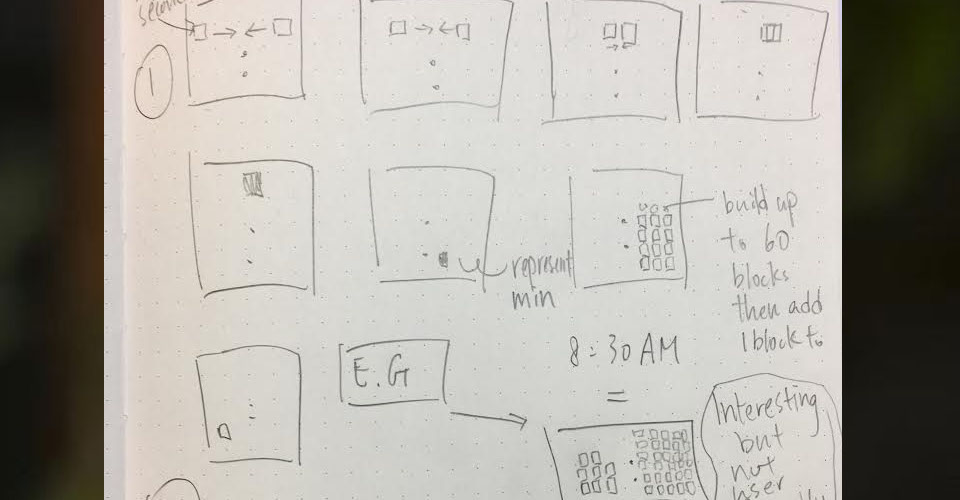 second
1
represent
min
build up
to 60
blocks
then add
1 block to
E.G
8:30 AM
=
Interesting
but
not
user